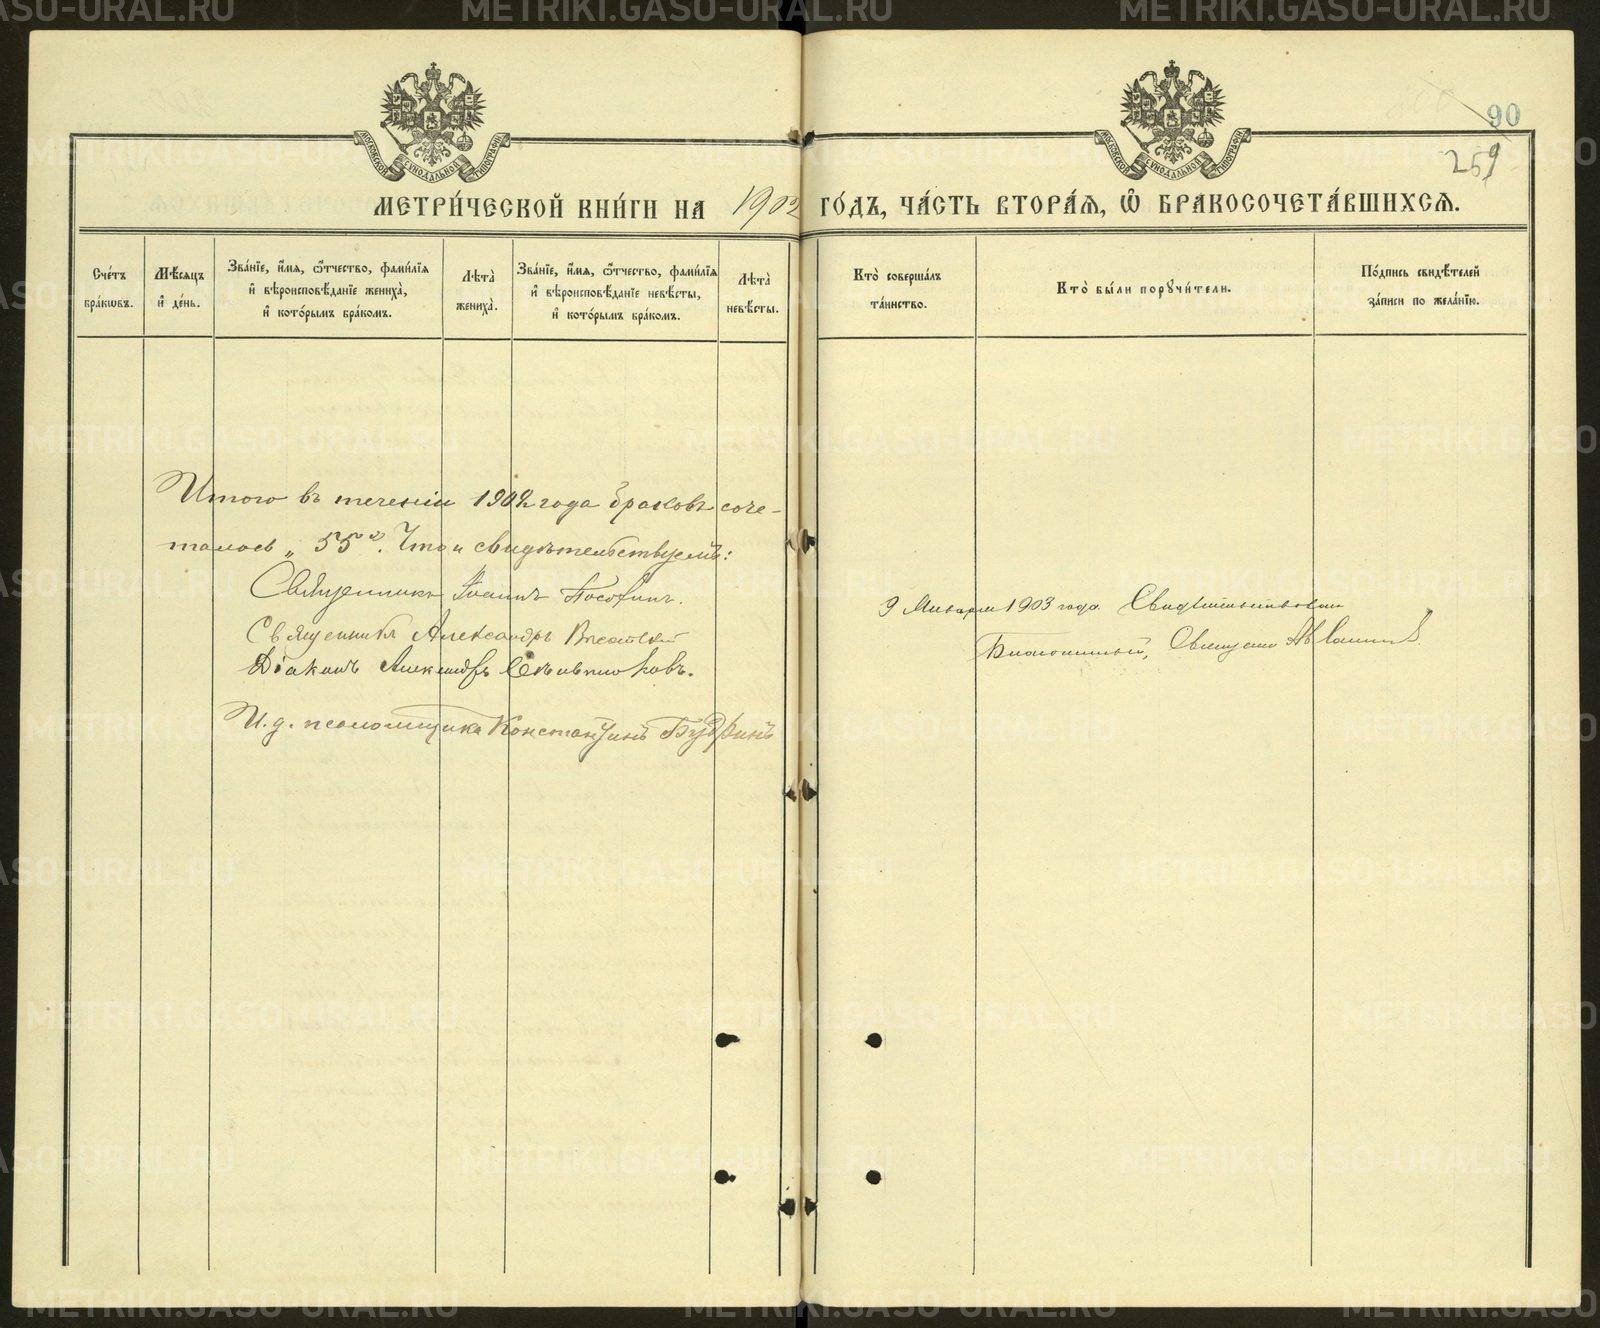 90
259
МЕТРИ́ЧЕСКОЙ КНИ́ГИ НА 1902 ГО́ДЪ, ЧА́СТЬ ВТОРА́Я, Ѿ БРАКОСОЧЕТА́ВШИХСЯ.
Сче́тъ бра́кѡвъ.
Мѣ́сяцъ и҆ де́нь.
Зва́нїе, и҆́мя, ѻ҆́тчество, фами́лїя и҆ вѣроисповѣ́данїе жениха̀, и҆ кото́рымъ бра́комъ.
Лѣ́та̀ жениха̀.
Зва́нїе, и҆́мя, ѻ҆́тчество, фами́лїя и҆ вѣроисповѣ́данїе невѣ́сты, и҆ кото́рымъ бра́комъ.
Лѣ́та̀ невѣ́сты.
Кто̀ соверша́лъ та́инство.
Кто̀ бы́ли порꙋчи́тели.
По́дпись свидѣ́телей за́писи по жела́нїю.
Итого въ теченіи 1902 года браковъ соче-
талось „ 55". Что и свидѣтельствуемъ:
Священникъ Іоаннъ
Священникъ Александръ
Діаконъ Александръ
И. д. псаломщика Константинъ Будринъ
9 Января 1903 года. Свидѣтельствовалъ
Благочинный, Священникъ